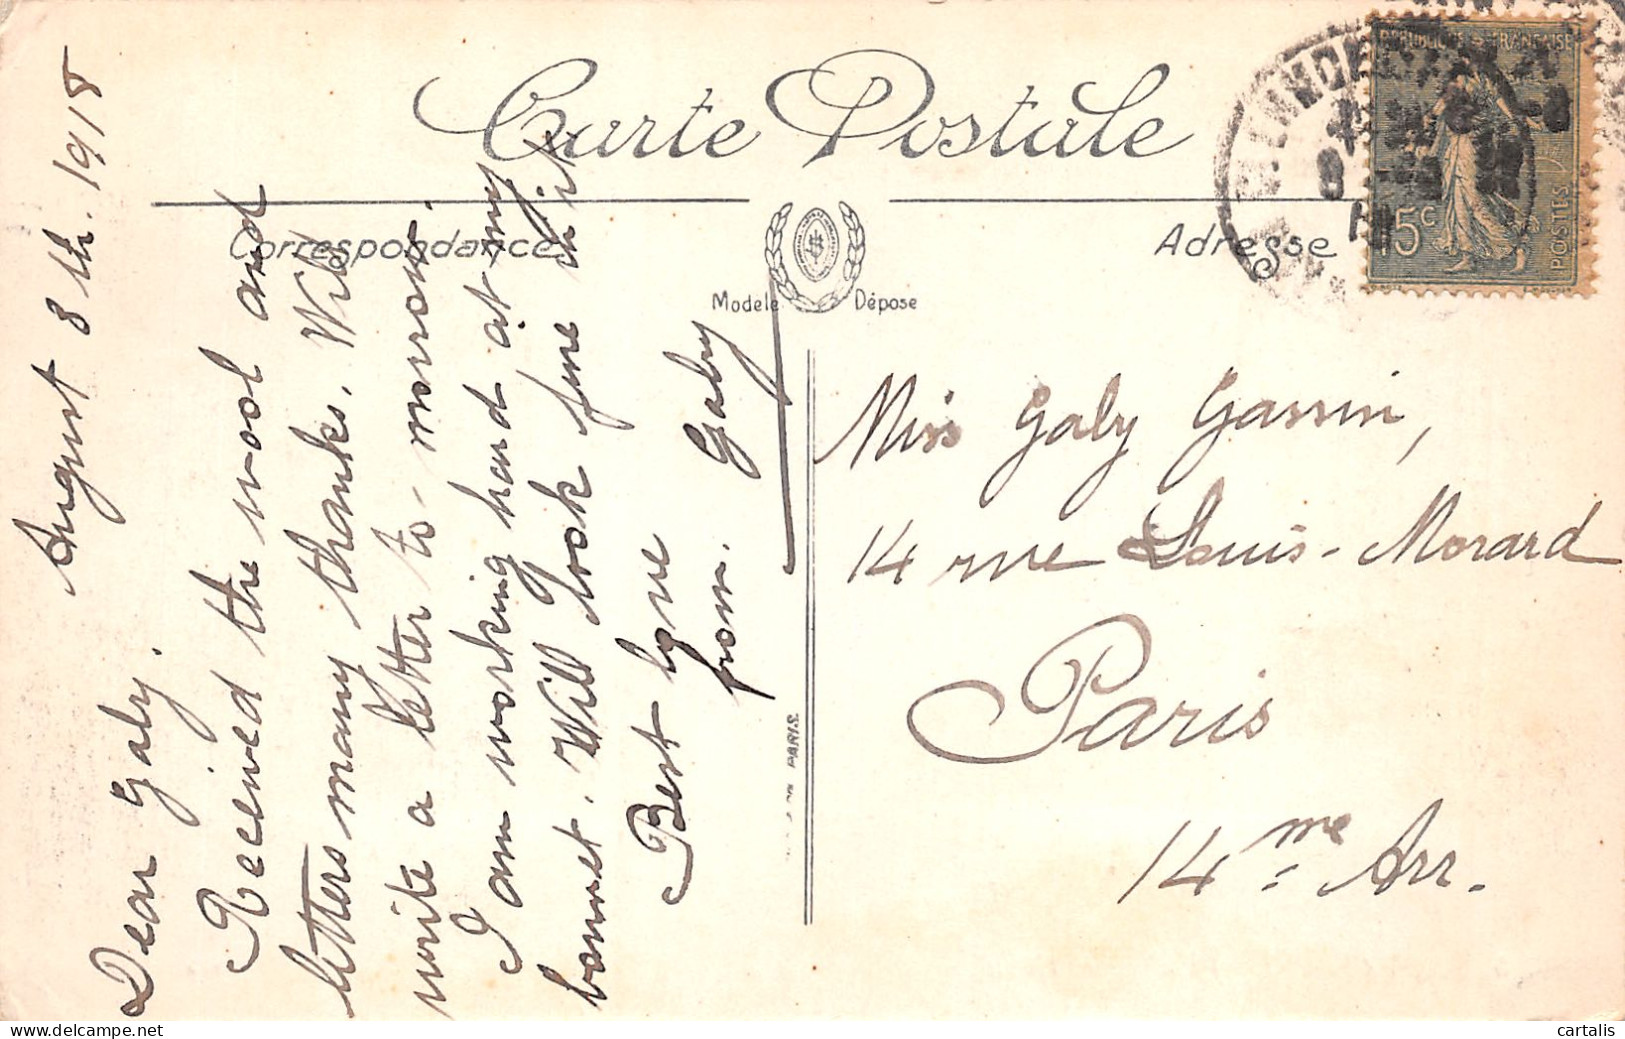 Carte Postale
Correspondance
Adresse
Modele Dépose
REPUBLIQUE FRANÇAISE
15c
POSTES
August 8th. 1918
Dear Gaby.
Received the wool and
letters many thanks. Will
write a letter to-morrow.
I am working hard at my
bonnet. Will look fine in it
Best love
from. Gaby
Miss Gaby Gassin,
14 rue Louis-Morard
Paris
14me Arr.
PARIS
cartalis